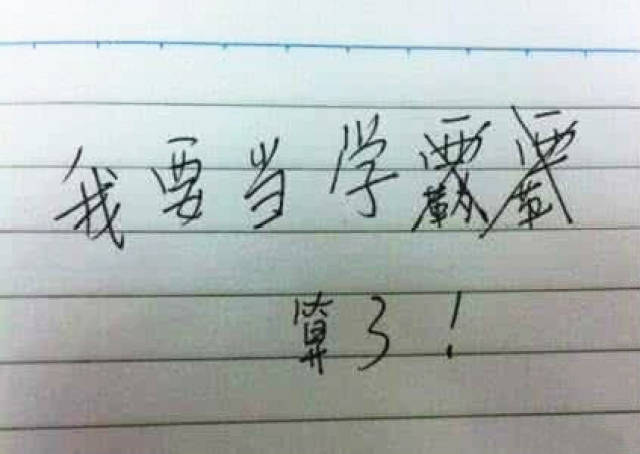 我要当学
算了!